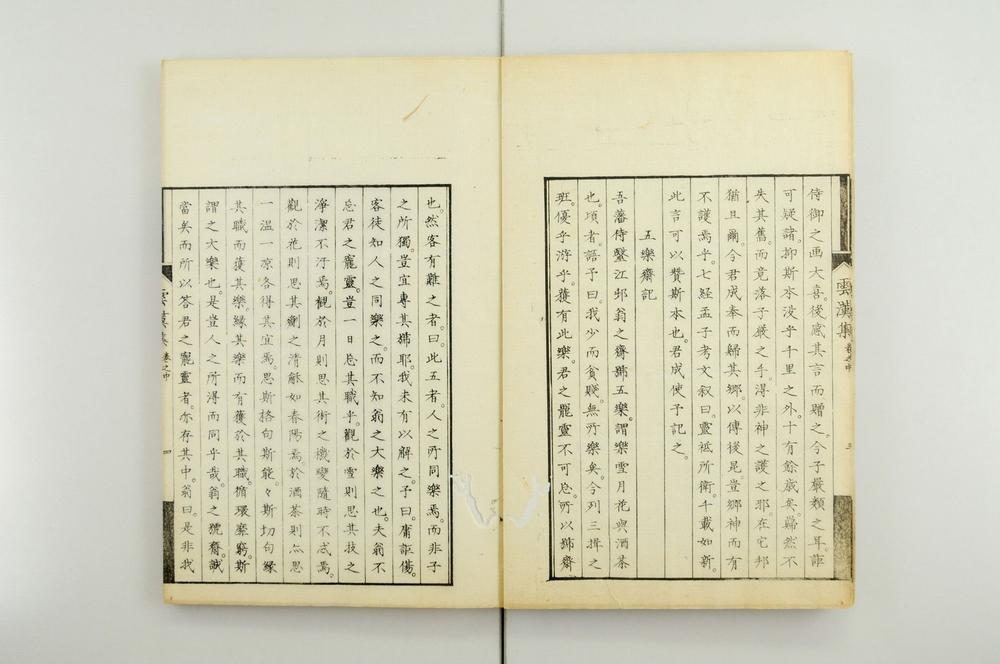 侍御之画大喜。後感其言而贈之。今子嚴類之耳。詎
可疑諸。抑斯本没乎千里之外。十有餘歳矣。歸然不
失其舊。而竟落子嚴之手。得非神之護之邪。在宅邦
猶且爾。今君成奉而歸其郷。以傳後昆。豈郷神而有
不護焉乎。七経孟子考文叙曰。靈祗所衛。千載如新。
此言可以贊斯本也。君成使予記之。
五樂齋記
吾藩侍醫江邨翁之齋號五樂。謂樂雪月花與酒茶
也。頃者。語予曰。我少而貧賤。無所樂矣。今列三揖之
班。優乎游乎。獲有此樂。君之寵靈不可忘。所以號齋
雲漢集
卷之中
三
也。然客有難之者。曰。此五者。人之所同樂焉。而非子
之所獨。豈宜專其號耶。我未有以解之。子曰。庸詎傷。
客徒知人之同樂之。而不知翁之大樂之也。夫翁不
忘君之寵靈。豈一日忘其職乎。觀於雪則思其技之
浄潔不汙焉。觀於月則思其術之機變隨時不忒焉。
觀於花則思其劑之清龢如春陽焉。於酒茶則亦思
一温一凉各得其宜焉。思斯格句斯能々斯切句縁
其職而獲其樂。縁其樂而有獲於其職。循環靡窮。斯
謂之大樂也。是豈人之所得而同乎哉。翁之號齋。誠
當矣。而所以答君之寵靈者。亦存其中。翁曰。是非我
雲漢集
卷之中
四